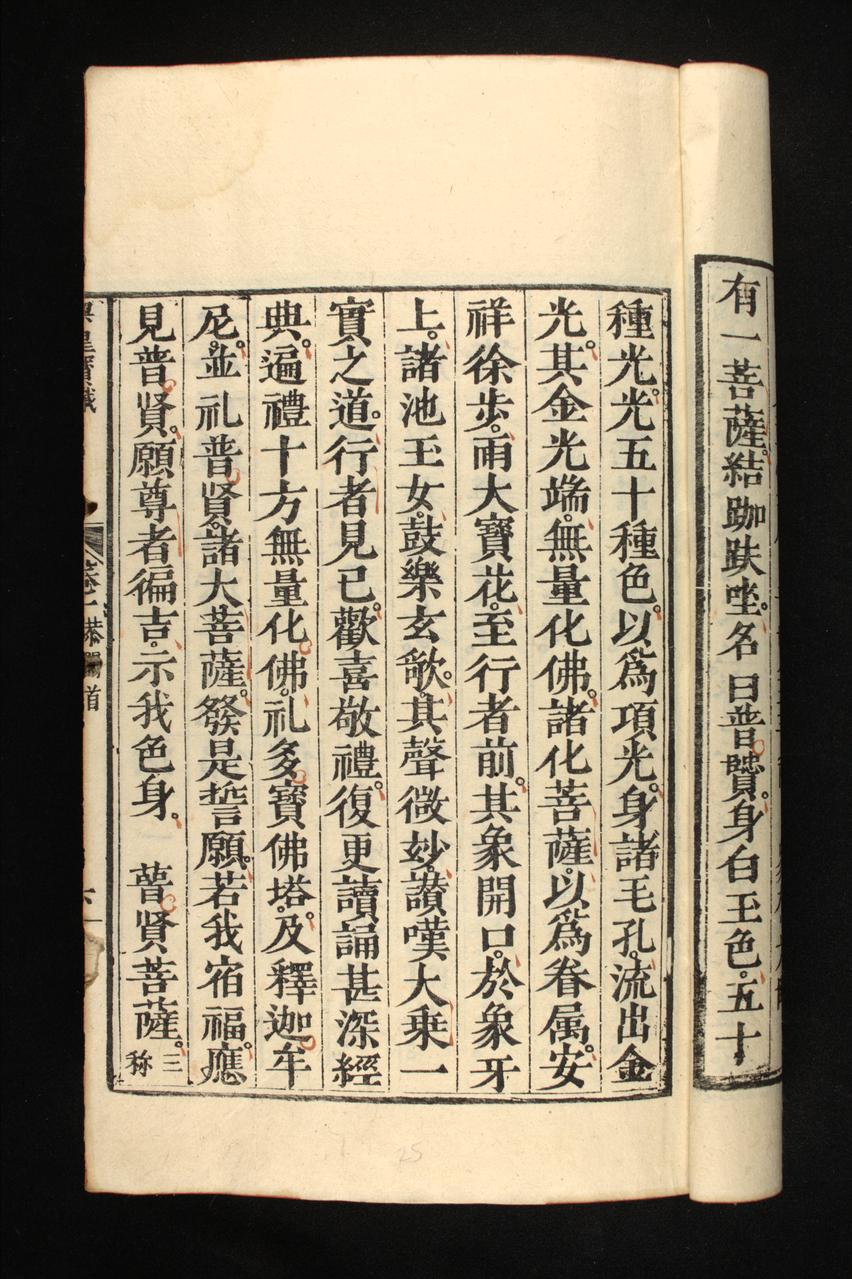 有一菩薩。結跏趺坐。名曰普賢。身白玉色。五十
種光。光五十種色。以爲項光。身諸毛孔。流出金
光。其金光端。無量化佛。諸化菩薩。以爲眷属。安
祥徐步。雨大寶花。至行者前。其象開口。於象牙
上。諸池玉女。鼓樂玄歌。其聲微妙。讃嘆大乗一
實之道。行者見已。歡喜敬禮。復更讀誦甚深經
典。遍禮十方無量化佛。礼多寶佛塔。及釋迦牟
尼。並礼普賢。諸大菩薩。發是誓願。若我宿福。應
見普賢。願尊者徧吉。示我色身。 普賢菩薩。三称